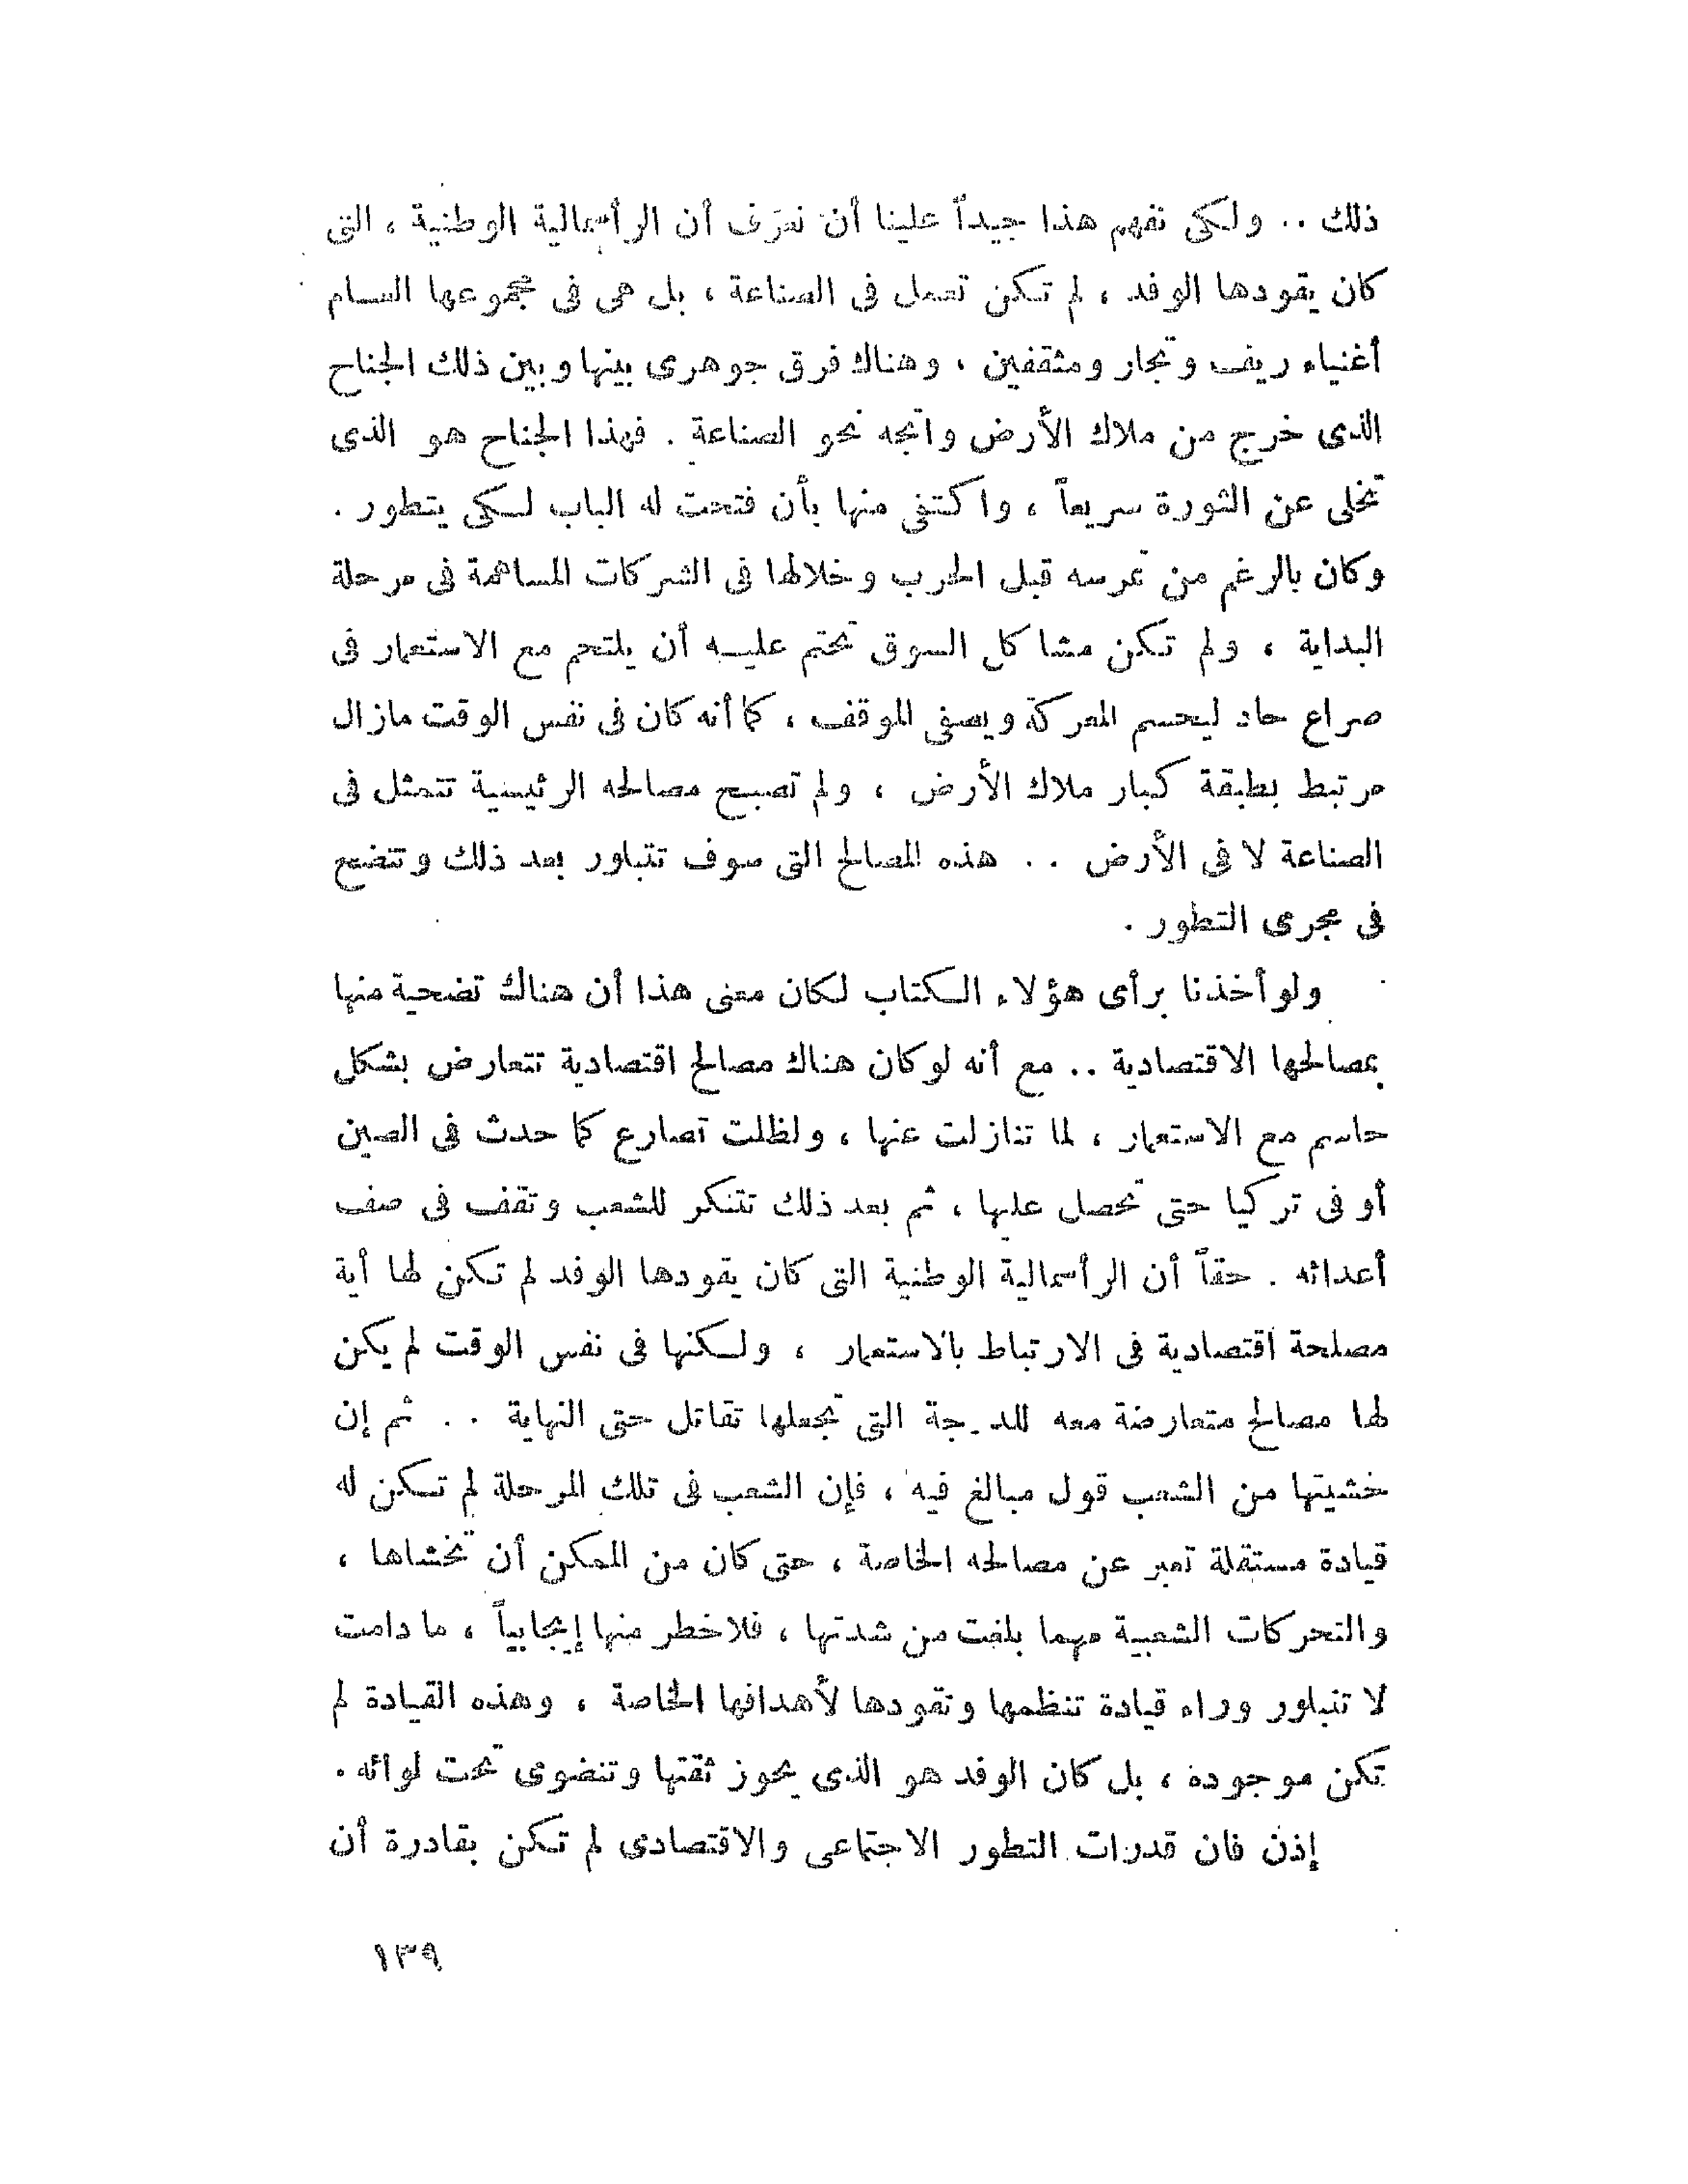 ذلك .. ولكى نفهم هذا جيداً علينا أن نعرف أن الرأسمالية الوطنية ، التى
كان يقودها الوفد ، لم تكن تعمل فى الصناعة ، بل هى فى مجموعها العام
أغنياء ريف وتجار ومثقفين ، وهناك فرق جوهرى بينها وبين ذلك الجناح
الذى خرج من ملاك الأرض واتجه نحو الصناعة . فهذا الجناح هو الذى
تخلى عن الثورة سريعاً ، واكتفى منها بأن فتحت له الباب لكى يتطور .
وكان بالرغم من تمرسه قبل الحرب وخلالها فى الشركات المساهمة فى مرحلة
البداية ، ولم تكن مشاكل السوق تحتم عليه أن يلتحم مع الاستعمار فى
صراع حاد ليحسم المعركة ويصفى الموقف ، كما أنه كان فى نفس الوقت مازال
مرتبط بطبقة كبار ملاك الأرض ، ولم تصبح مصالحه الرئيسية تتمثل فى
الصناعة لا فى الأرض .. هذه المصالح التى سوف تتبلور بعد ذلك وتتضح
فى مجرى التطور .
ولو أخذنا برأى هؤلاء الكتاب لكان معنى هذا أن هناك تضحية منها
بمصالحها الاقتصادية .. مع أنه لو كان هناك مصالح اقتصادية تتعارض بشكل
حاسم مع الاستعمار ، لما تنازلت عنها ، ولظلت تصارع كما حدث فى الصين
أو فى تركيا حتى تحصل عليها ، ثم بعد ذلك تتنكر للشعب وتقف فى صف
أعدائه . حقاً أن الرأسمالية الوطنية التى كان يقودها الوفد لم تكن لها أية
مصلحة اقتصادية فى الارتباط بالاستعمار ، ولكنها فى نفس الوقت لم يكن
لها مصالح متعارضة معه للدرجة التى تجعلها تقاتل حتى النهاية .. ثم إن
خشيتها من الشعب قول مبالغ فيه ، فإن الشعب فى تلك المرحلة لم تكن له
قيادة مستقلة تعبر عن مصالحه الخاصة ، حتى كان من الممكن أن تخشاها ،
والتحركات الشعبية مهما بلغت من شدتها ، فلا خطر منها إيجابياً ، ما دامت
لا تتبلور وراء قيادة تنظمها وتقودها لأهدافها الخاصة ، وهذه القيادة لم
تكن موجودة ، بل كان الوفد هو الذى يحوز ثقتها وتنضوى تحت لوائه .
إذن فان قدرات التطور الاجتماعى والاقتصادى لم تكن بقادرة أن
١٣٩